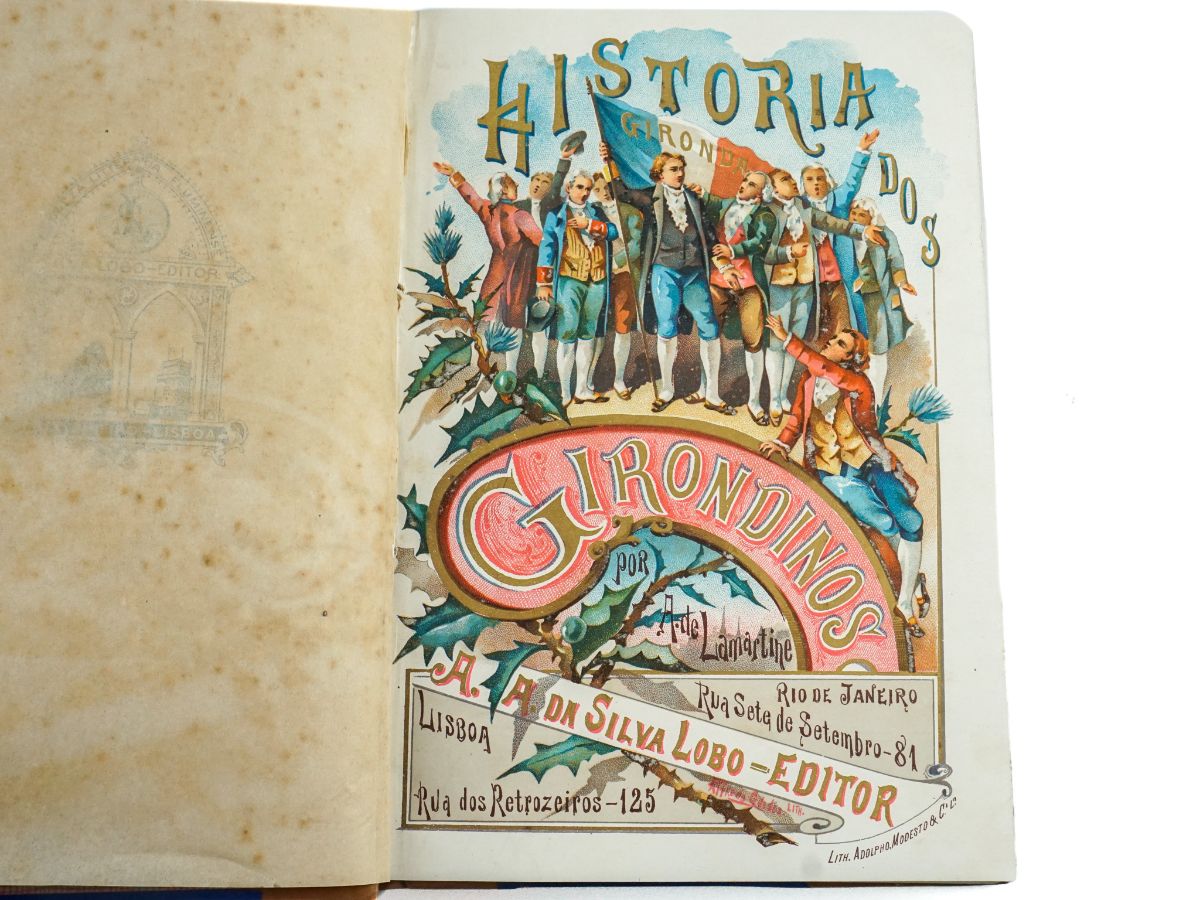 LOBO-EDITOR
LISBOA
HISTORIA
GIRONDA
DOS
GIRONDINOS
POR
A. de Lamartine
RIO DE JANEIRO
Rua Sete de Setembro-81
A. A. DA SILVA LOBO-EDITOR
LISBOA
Rua dos Retrozeiros-125
LITH.
LITH. ADOLPHO, MODESTO & Cª